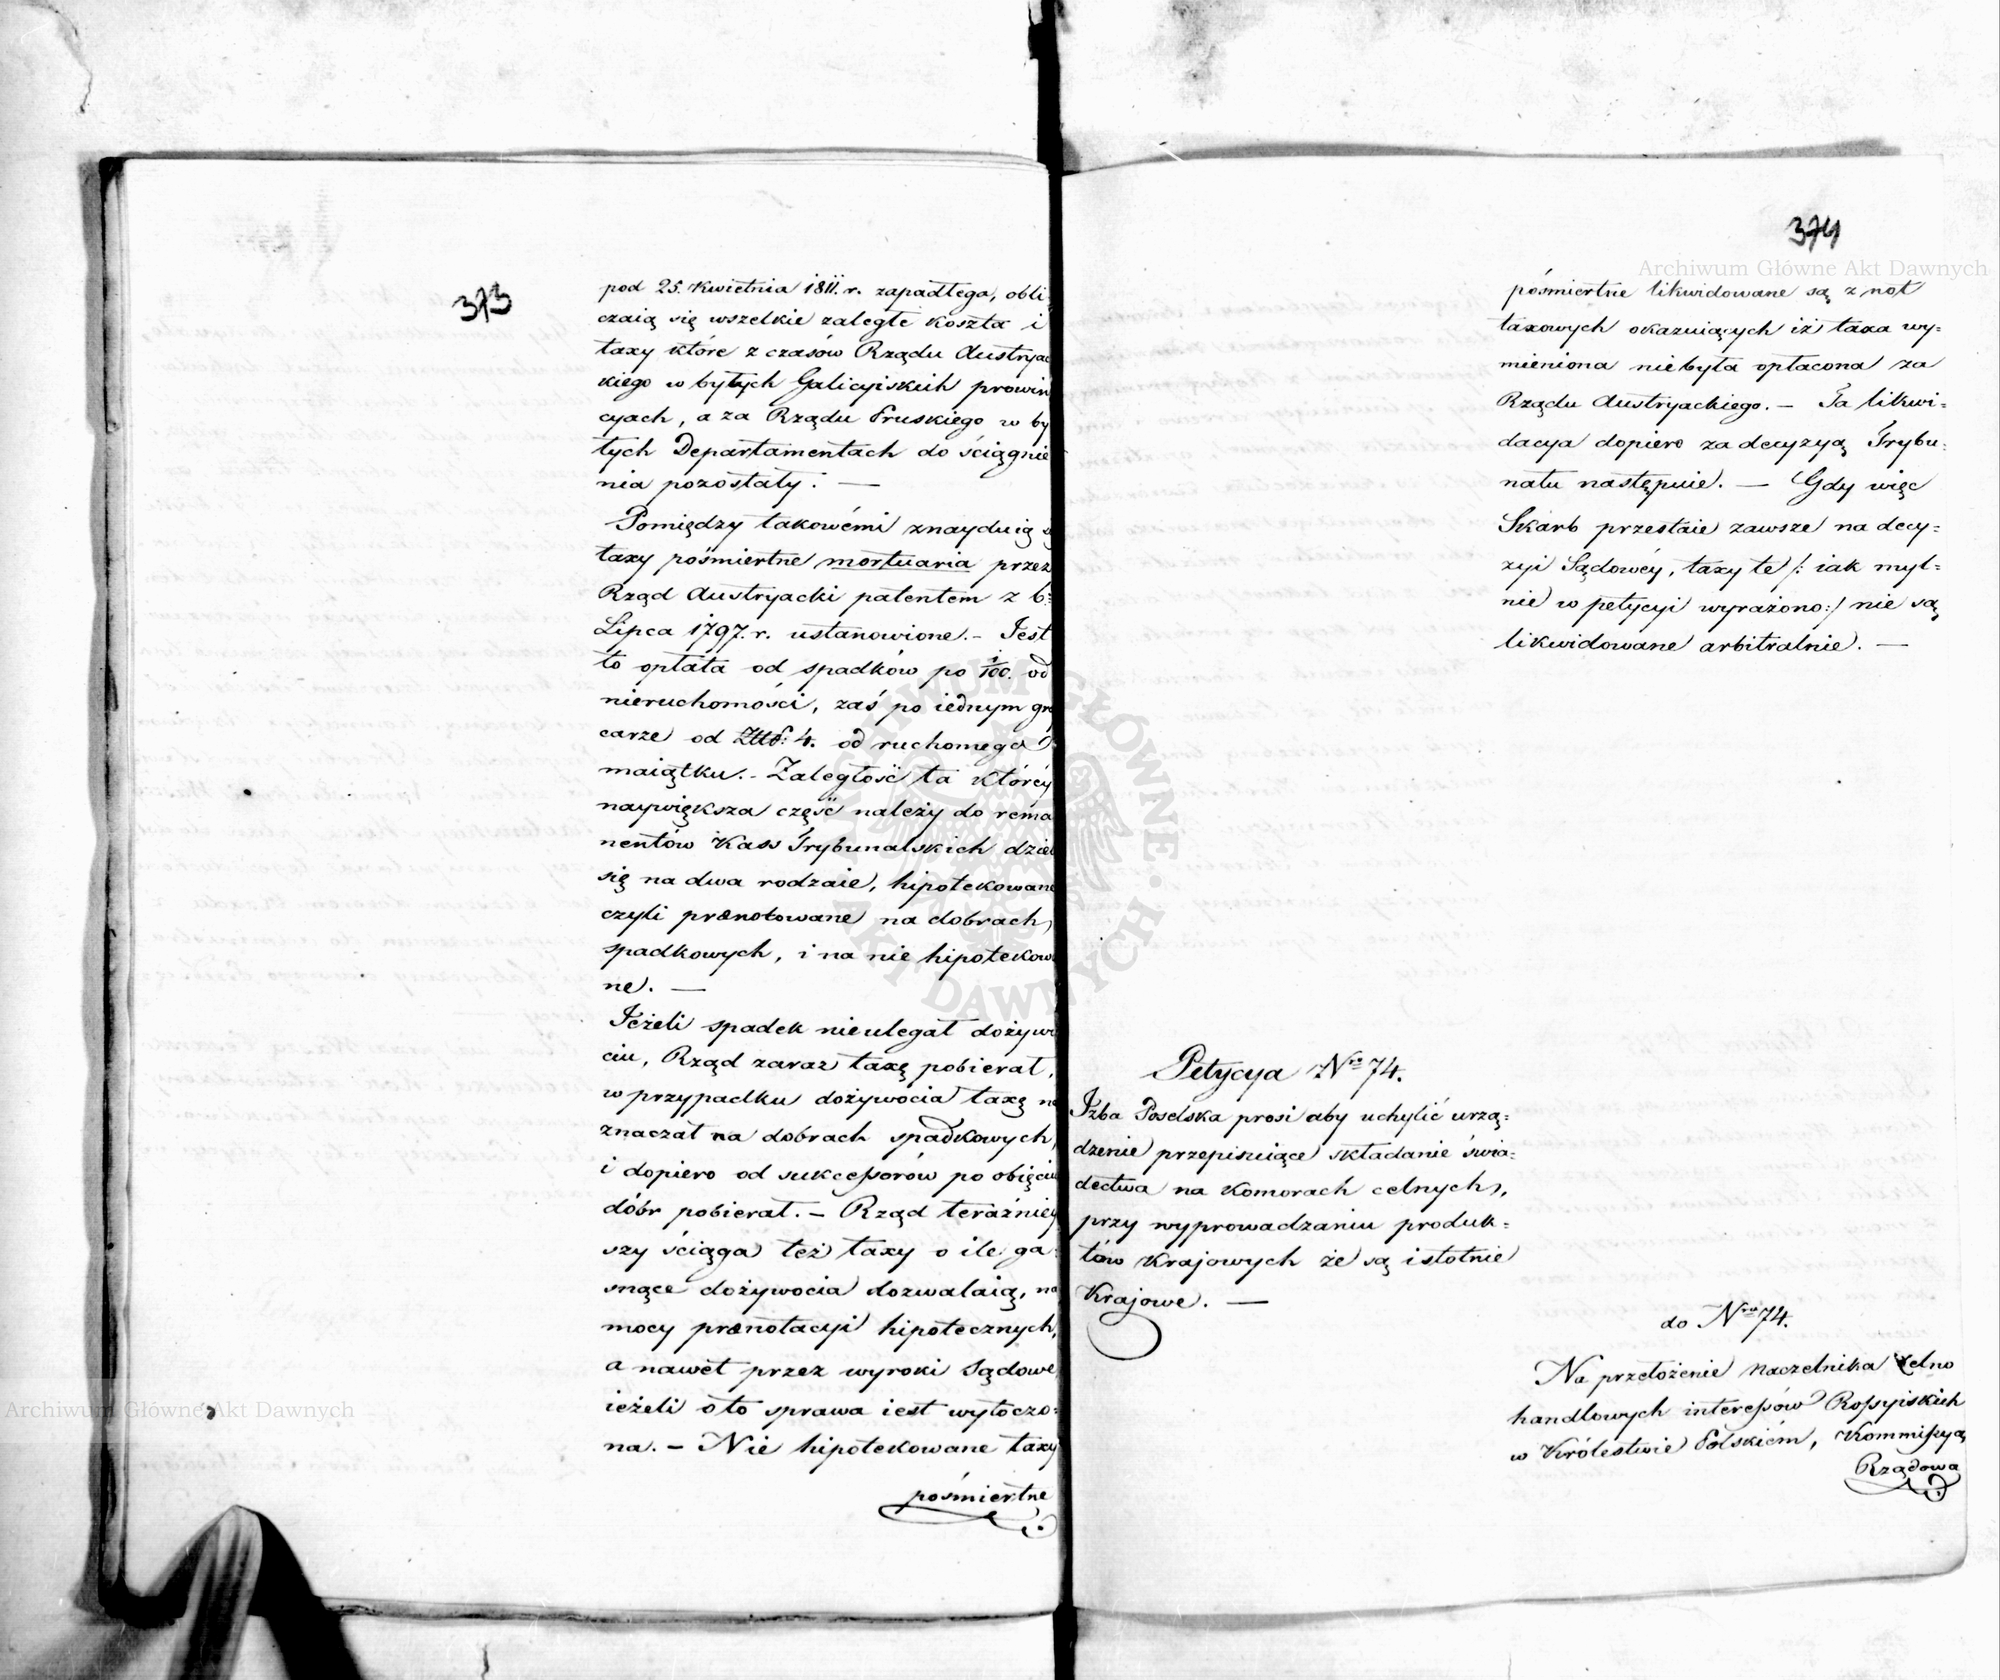 373
pod 25. Kwietnia 1811. r. zapadłego, obli
czaią się wszelkie zaległe koszta i
taxy które z czasów Rządu Austryac
kiego w bytych Galicyiskich prowin
cyach, a za Rządu Pruskiégo w by
łych Departamentach do ściągnie
nia pozostały. —
Pomiędzy takowémi znayduią s
taxy pośmiertne mortuaria przez
Rząd Austryacki patentem z 6:
Lipca 1797. r. ustanowione. - Jest
to opłata od spadków po 1/100. od
nieruchomości, zaś po iednym gra
carze od Złł: 4. od ruchomego
maiątku. - Zaległość ta któréy
naywiększa część należy do rema
nentów Kass Trybunalskich dziel
się na dwa rodzaie, hipotekowane
czyli prænotowane na dobrach
spadkowych, i na nie hipotekow
ne. —
Jeżeli spadek nieulegał dożywo
ciu, Rząd zaraz taxę pobierał,
w przypadku dożywocia taxę na
znaczał na dobrach spadkowych,
i dopiero od sukcessorów po obięciu
dóbr pobierał. - Rząd teraźniey
szy ściąga też taxy o ile ga-
snące dożywocia dozwalaią, na
mocy prænotacyi hipotecznych,
a nawet przez wyroki Sądowe
ieżeli oto sprawa iest wytoczo-
na. - Nie hipotekowane taxy
pośmiertne
374
pośmiertne likwidowane są z not
taxowych okazuiących iż taxa wy=
mieniona niebyła opłacona za
Rządu Austryackiego. - Ta likwi=
dacya dopiero za decyzyą Trybu=
nału następuie. — Gdy więc
Skarb przestaie zawsze na decy=
zyi Sądowéy, taxy te /: iak myl=
nie w petycyi wyrażono:/ nie są
likwidowane arbitralnie. —
Petycya Nro 74.
Izba Poselska prosi aby uchylić urzą=
dzenie przepisuiące składanie świa=
dectwa na Komorach celnych,
przy wyprowadzaniu produk=
tów Krajowych że są istotnie
Krajowe. —
do Nro 74.
Na przełożenie Naczelnika Celno
handlowych interessów Rossyiskich
w Królestwie Polskiém, Kommissya
Rządowa
Archiwum Główne Akt Dawnych
Archiwum Główne Akt Dawnych
ARCHIWUM GŁÓWNE AKT DAWNYCH